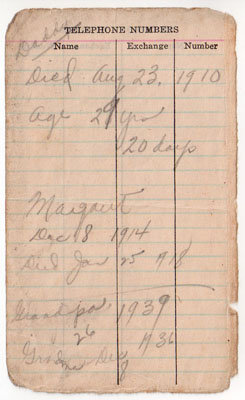 TELEPHONE NUMBERS
Name Exchange Number
Daddy
Died Aug 23, 1910
Age 29 yrs
20 days
Margaret
Dec 8 1914
Died Jan 25 1918
Grandpa 1939
26 1936
Grandma Dec